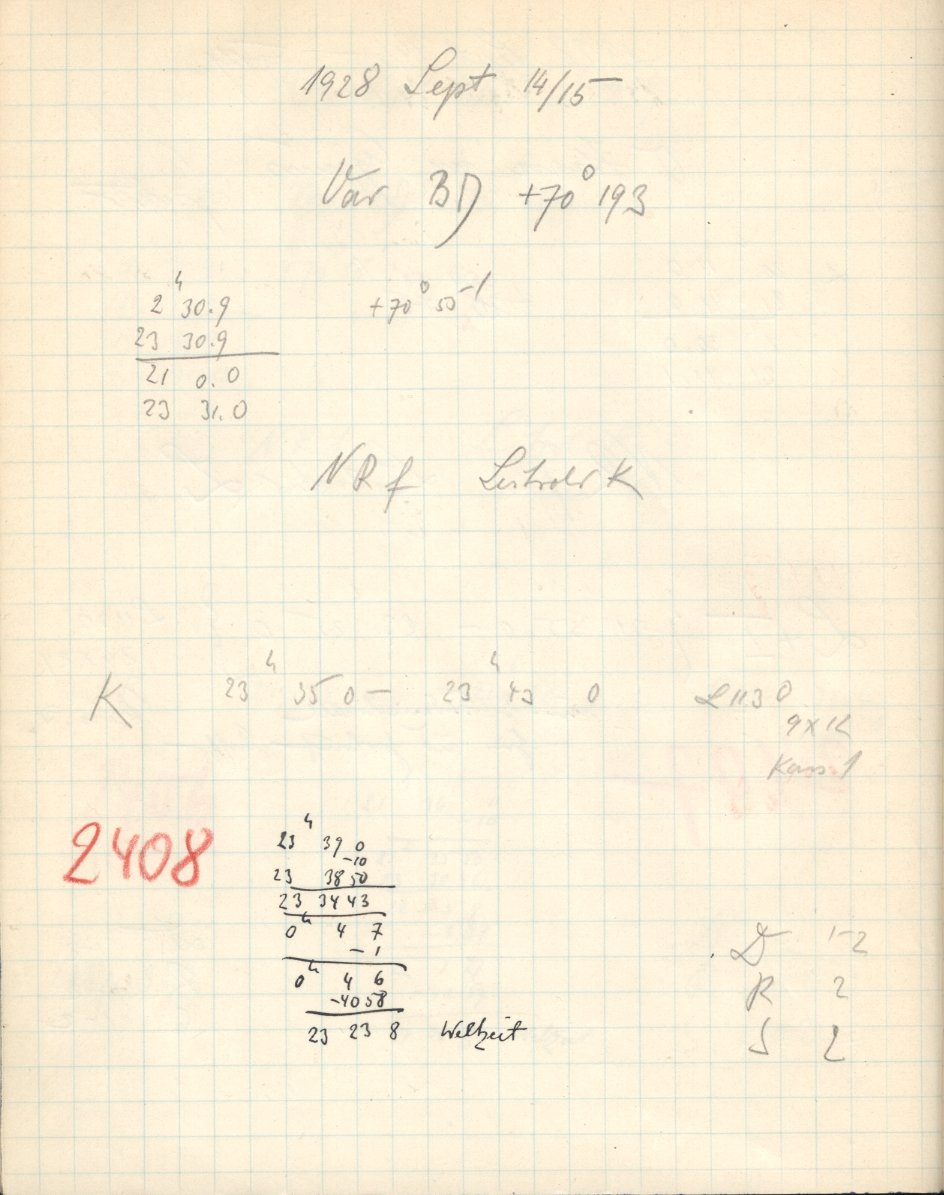 1928 Sept 14/15
Var BD +70° 193
2ʰ 30.9 +70° 55'
23 30.9
21 0.0
23 31.0
NRf
K 23ʰ 35 0 – 23ʰ 43 0
9 x 12
Kass 1
2408
23ʰ 39 0
–10
23 38 50
23 34 43
0ʰ 4 7
– 1
0ʰ 4 6
–40 58
23 23 8 Weltzeit
D 1-2
R 2
S 2